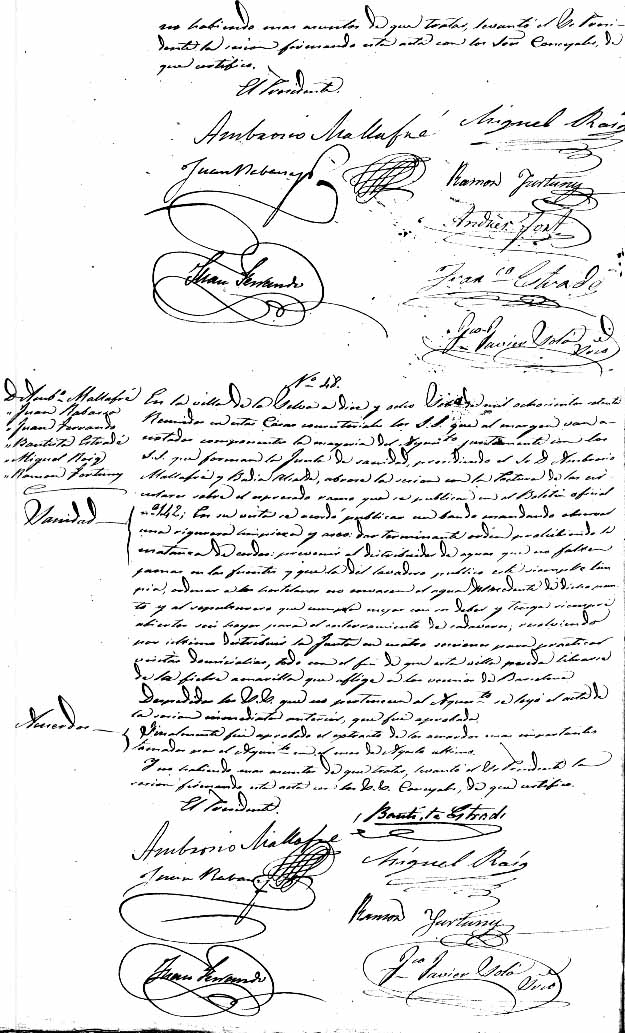 no habiendo mas asuntos de que tratar, levantó el Sr. Presi-
dente la sesion firmando esta acta con los Sres Concejales, de
que certifico.
El Presidente
Ambrosio Mallafré
Miguel Raig
Juan Rabascó
Ramon Fortuny
Andres Fort
Juan Ferrando
Fran.co Estrade
Fco Javier Soló
Srio
Nº 48.
D. Amb.º Mallafré
" Juan Rabascó
" Juan Ferrando
" Bautista Estrade
" Miguel Raig
" Ramon Fortuny
En la villa de la Selva a diez y ocho de mil ochocientos setenta
Reunidos en estas Casas consistoriales los S.S. que al margen van a-
notados componentes la mayoria del Ayunt.to juntamente con los
S.S. que forman la Junta de sanidad, presidiendo el Sr D. Ambrosio
Mallafré y Badia Alcalde, abrese la sesion con la lectura de las cir-
culares sobre el espresado ramo que se publican en el Boletin oficial
Sanidad
nº 142; En su vista se acordó publicar un bando mandando observar
una rigurosa limpieza y aseo: dar terminante orden prohibiendo la
matanza de cerdos: prevenir al distribuidor de aguas que no falten
jamas en las fuentes y que la del lavadero publico esté siempre lim-
pia, ordenar a los hortelanos no el agua procedente de dicho pun-
to y al sepulturero que cumpla mejor con su deber y tenga siempre
abiertos seis hoyos para el enterramiento de cadaveres; resolviendo
por ultimo distribuir la Junta en cuatro secciones para practicar
visitas domiciliarias, todo con el fin de que esta villa pueda librarse
de la fiebre amarilla que aflige a los vecinos de Barcelona
Despedidos los S.S. que no pertenecen al Ayunt.to se leyó el acta de
la sesion inmediata anterior, que fue aprobada
Acuerdos
Finalmente fue aprobado el extracto de los acuerdos mas importantes
tomados por el Ayunt.to en el mes de Agosto ultimo.
Y no habiendo mas asuntos de que tratar, levantó el Sr. Presidente la
sesion firmando esta acta con los S.S. Concejales, de que certifico.
El Presidente
Bautista Estrade
Ambrosio Mallafré
Miguel Raig
Juan Rabascó
Ramon Fortuny
Juan Ferrando
Fco Javier Soló
Srio